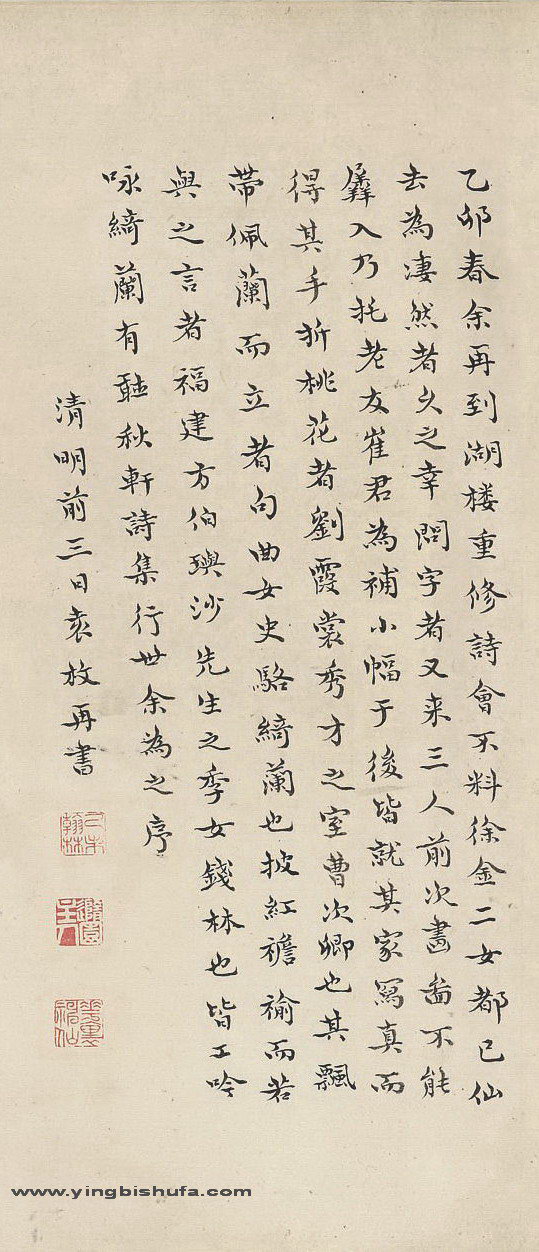 乙卯春余再到湖楼重修詩會不料徐金二女都已仙
去為凄然者久之幸問字者又来三人前次畫啚不能
羼入乃托老友崔君為補小幅于後皆就其家寫真而
得其手折桃花者劉霞裳秀才之室曹次卿也其飄
帶佩蘭而立者句曲女史駱綺蘭也披紅襜褕而若
與之言者福建方伯璵沙先生之季女錢林也皆工吟
咏綺蘭有聼秋軒詩集行世余為之序
清明前三日袁枚再書
己未翰林
隨園主人
www.yingbishufa.com